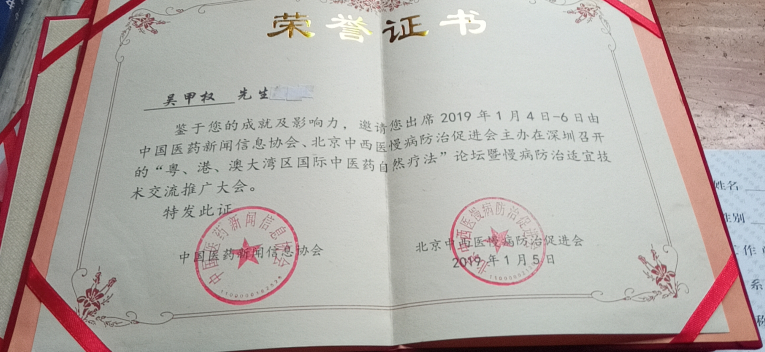 荣誉证书
吴甲权 先生
鉴于您的成就及影响力，邀请您出席 2019 年 1 月 4 日-6 日由
中国医药新闻信息协会、北京中西医慢病防治促进会主办在深圳召开
的“粤、港、澳大湾区国际中医药自然疗法”论坛暨慢病防治适宜技
术交流推广大会。
特发此证
中国医药新闻信息协会
北京中西医慢病防治促进会
2019 年 1 月 5 日
中国医药新闻信息协会
北京中西医慢病防治促进会
姓名
性别
工作
系
称